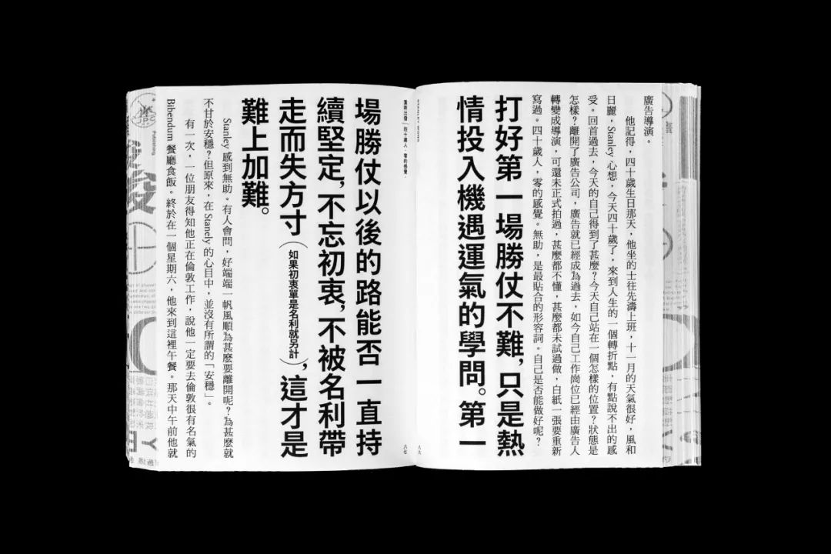 廣告導演。
他記得，四十歲生日那天，他坐的士往先濤上班，十一月的天氣很好，風和
日麗，Stanley 心想，今天四十歲了，來到人生的一個轉折點，有點說不出的感
受。回首過去，今天的自己得到了甚麼？今天自己站在一個怎樣的位置？狀態是
怎樣？離開了廣告公司，廣告就已經成為過去，如今自己工作崗位已經由廣告人
轉變成導演，可還未正式拍過，甚麼都不懂，甚麼都未試過做，白紙一張要重新
寫過。四十歲人，零的感覺。無助，是最貼合的形容詞。自己是否能做好呢？
打好第一場勝仗不難，只是熱
情投入機遇運氣的學問。第一
場勝仗以後的路能否一直持
續堅定，不忘初衷，不被名利帶
走而失方寸（如果初衷單是名利就另計），這才是
難上加難。
Stanley 感到無助。有人會問，好端端一帆風順為甚麼要離開呢？為甚麼就
不甘於安穩？但原來，在 Stanely 的心目中，並沒有所謂的「安穩」。
有一次，一位朋友得知他正在倫敦工作，說他一定要去倫敦很有名氣的
Bibendum 餐廳食飯。終於在一個星期六，他來到這裡午餐。那天中午前他就